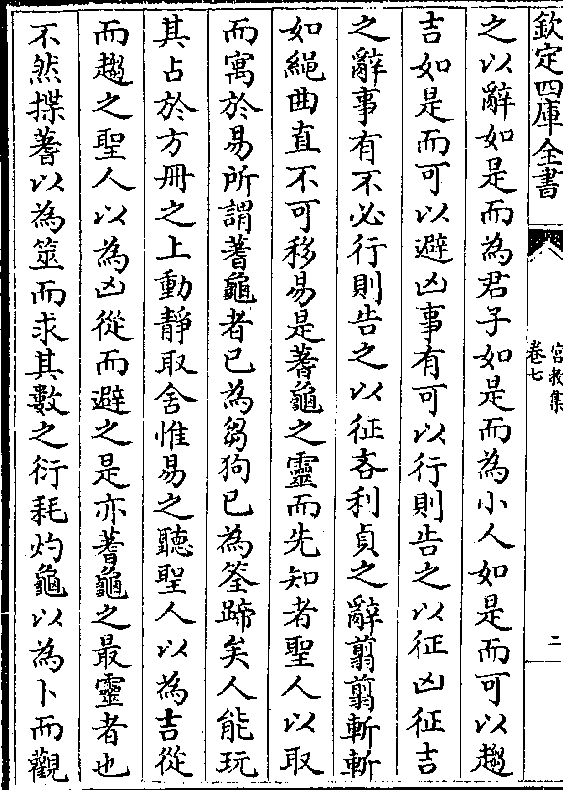 欽定四庫全書
宮教集
卷七
二
之以辭如是而為君子如是而為小人如是而可以趨
吉如是而可以避凶事有可以行則告之以征凶征吉
之辭事有不必行則告之以征吝利貞之辭翦翦斬斬
如繩曲直不可移易是蓍龜之靈而先知者聖人以取
而寓於易所謂蓍龜者已為芻狗已為筌蹄矣人能玩
其占於方冊之上動靜取舍惟易之聽聖人以為吉從
而趨之聖人以為凶從而避之是亦蓍龜之最靈者也
不然揲蓍以為筮而求其數之衍耗灼龜以為卜而觀